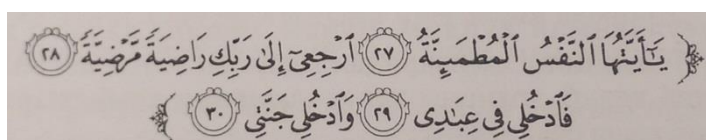 ﴿ يَٰٓأَيَّتُهَا ٱلنَّفۡسُ ٱلۡمُطۡمَئِنَّةُ ٢٧ ٱرۡجِعِيٓ إِلَىٰ رَبِّكِ رَاضِيَةٗ مَّرۡضِيَّةٗ ٢٨
فَٱدۡخُلِي فِي عِبَٰدِي ٢٩ وَٱدۡخُلِي جَنَّتِي ٣٠ ﴾